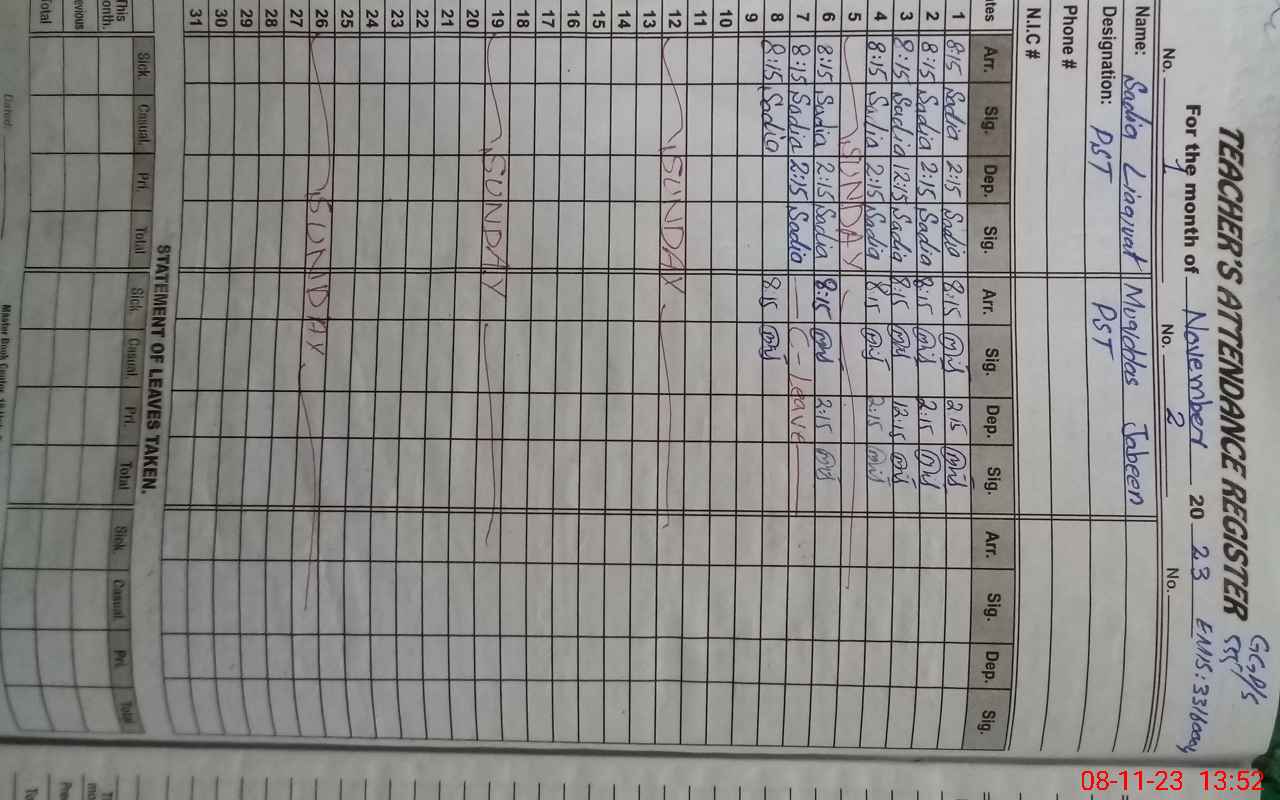 TEACHER'S ATTENDANCE REGISTER
For the month of November 2023 EMIS:
No. 1 No. 2 No.
Name: Sadia Liaqwat Muqiddas Jabeen
Designation: PST PST
Phone #
N.I.C #
tes Arr. Sig. Dep. Sig. Arr. Sig. Dep. Sig. Arr. Sig. Dep. Sig.
1 8:15 Sadia 2:15 Sadia 8:15 2:15
2 8:15 Sadia 2:15 Sadia 8:15 2:15
3 8:15 Sadia 12:15 Sadia 8:15 12:15
4 8:15 Sadia 2:15 Sadia 8:15 2:15
5 SUNDAY
6 8:15 Sadia 2:15 Sadia 8:15 2:15
7 8:15 Sadia 2:15 Sadia C-Leave
8 8:15 Sadia 8:15
9
10
11
12 SUNDAY
13
14
15
16
17
18
19 SUNDAY
20
21
22
23
24
25
26 SUNDAY
27
28
29
30
31
STATEMENT OF LEAVES TAKEN.
This onth. Sick Casual. Pri. Total Sick Casual. Pri. Total Sick Casual. Pri. Total
evious
otal
Dated:
08-11-23 13:52